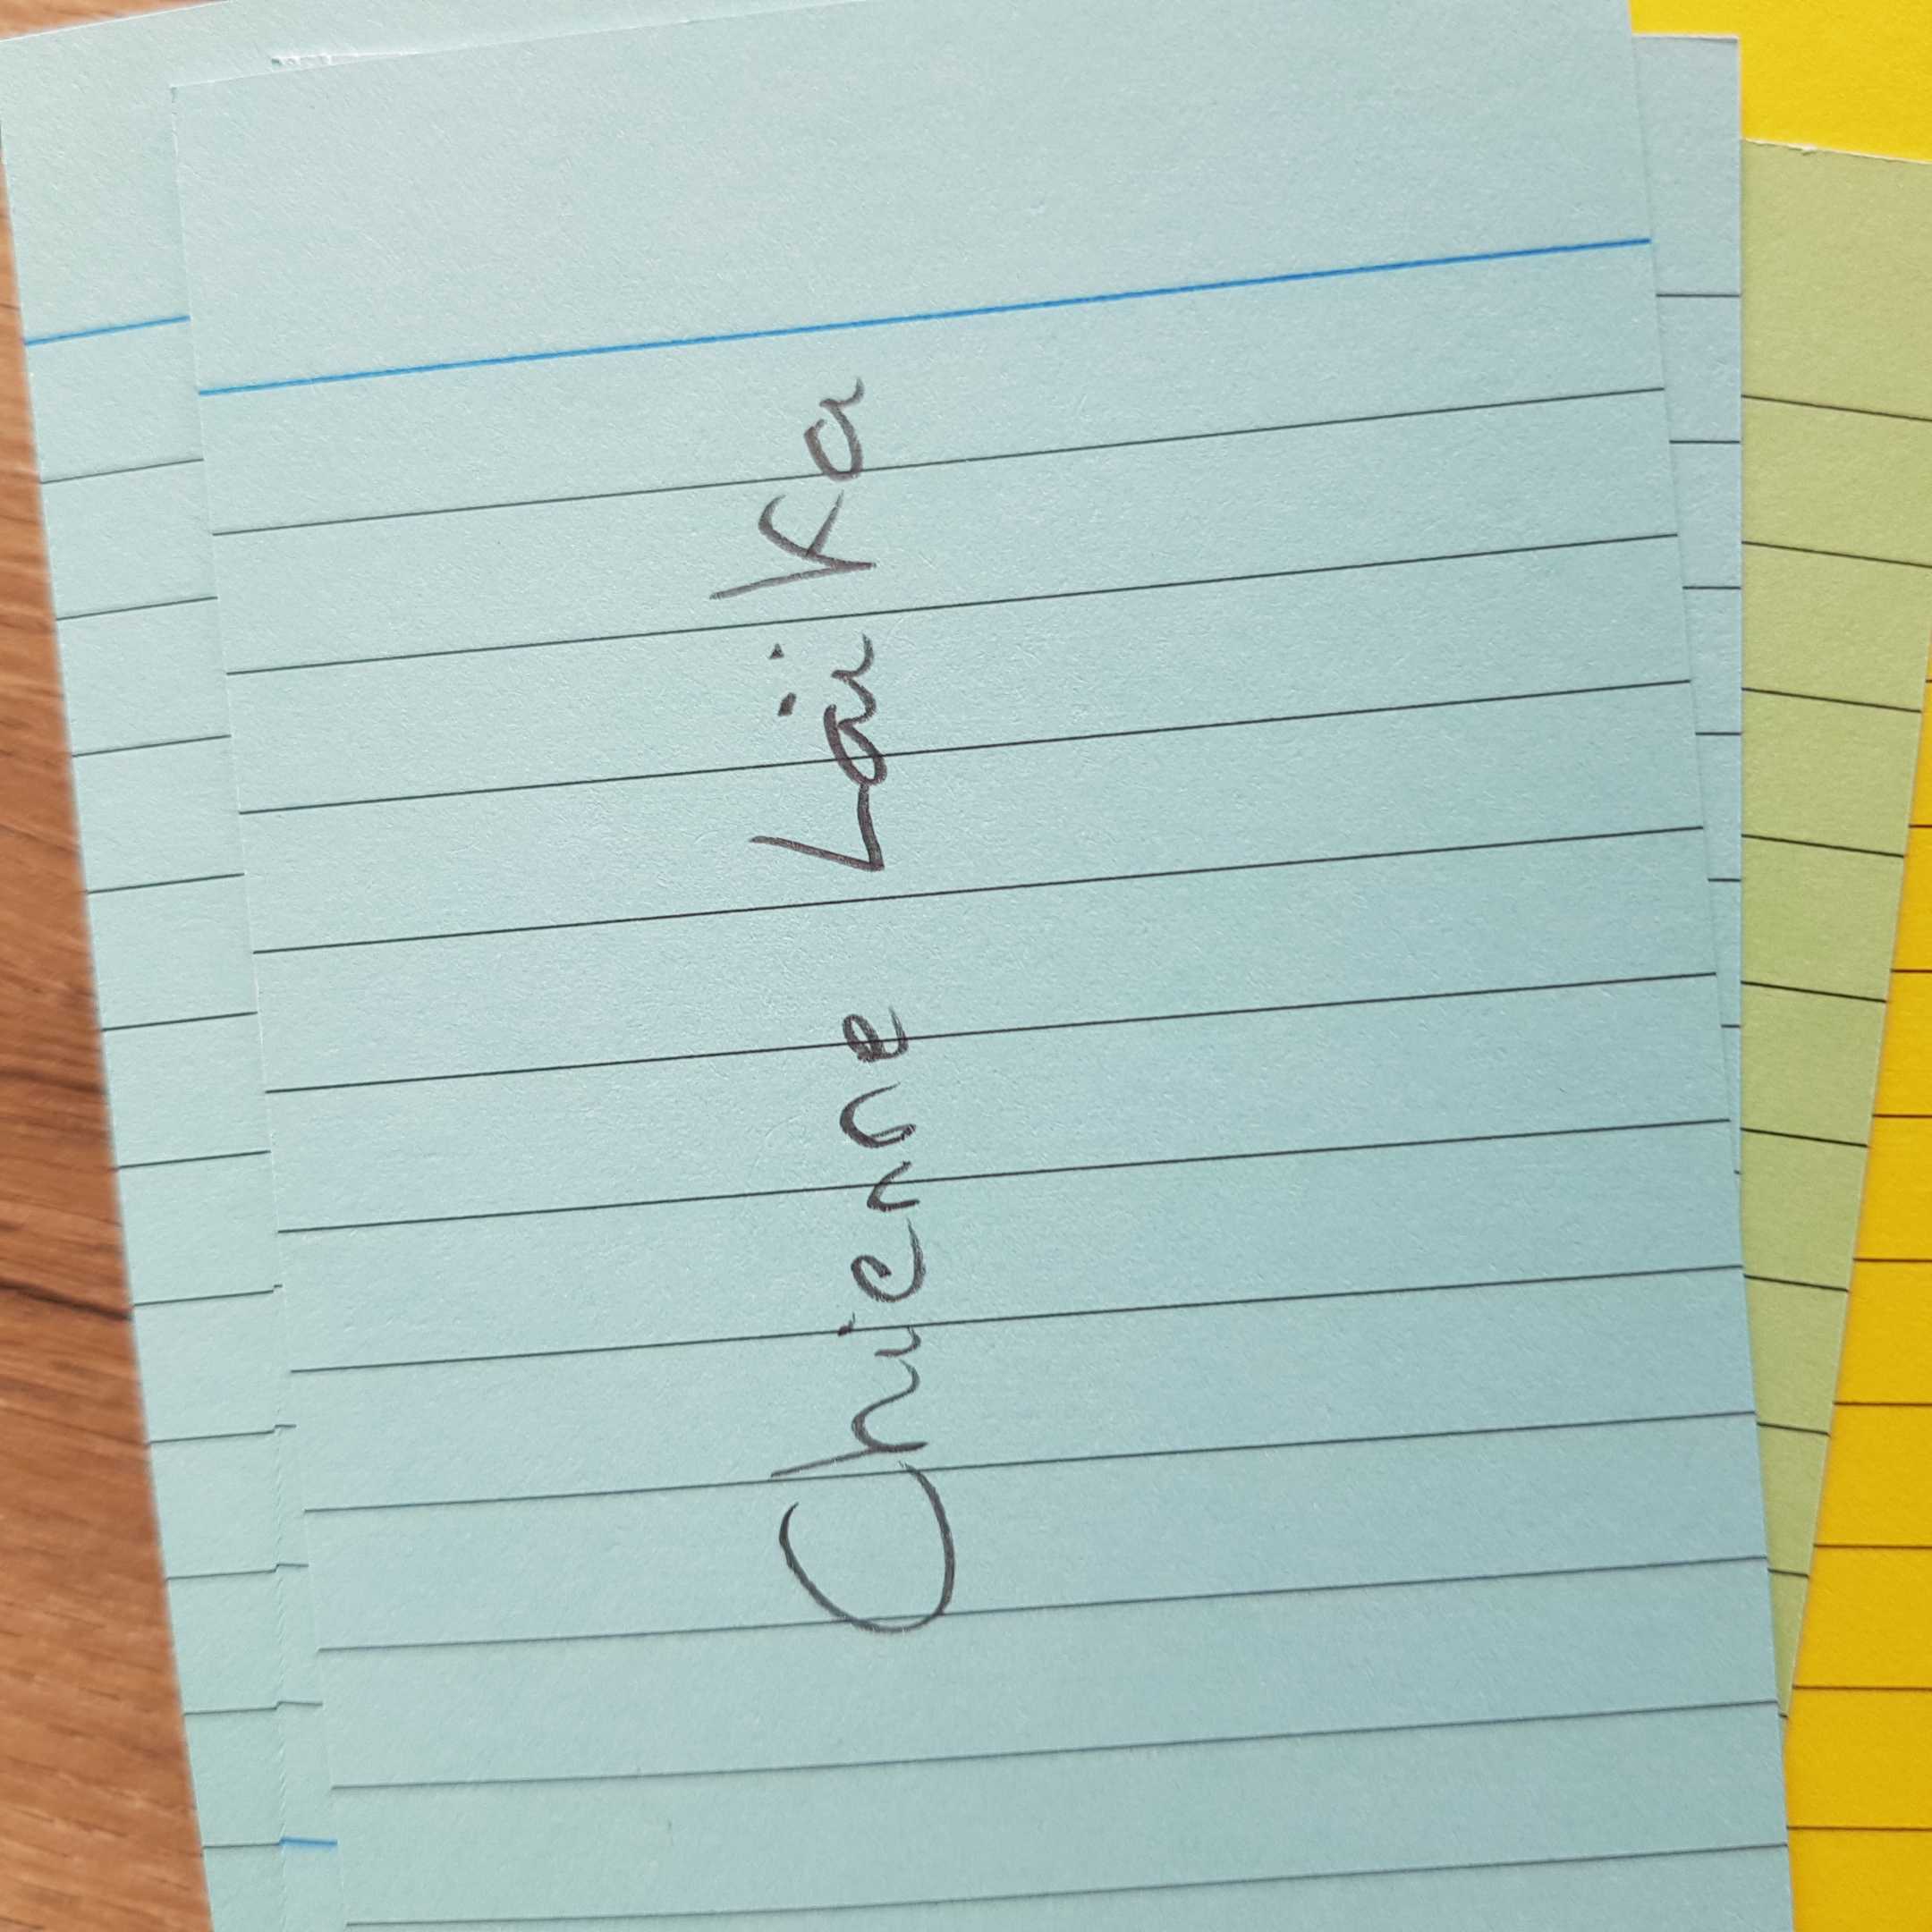 Chienne Laïka